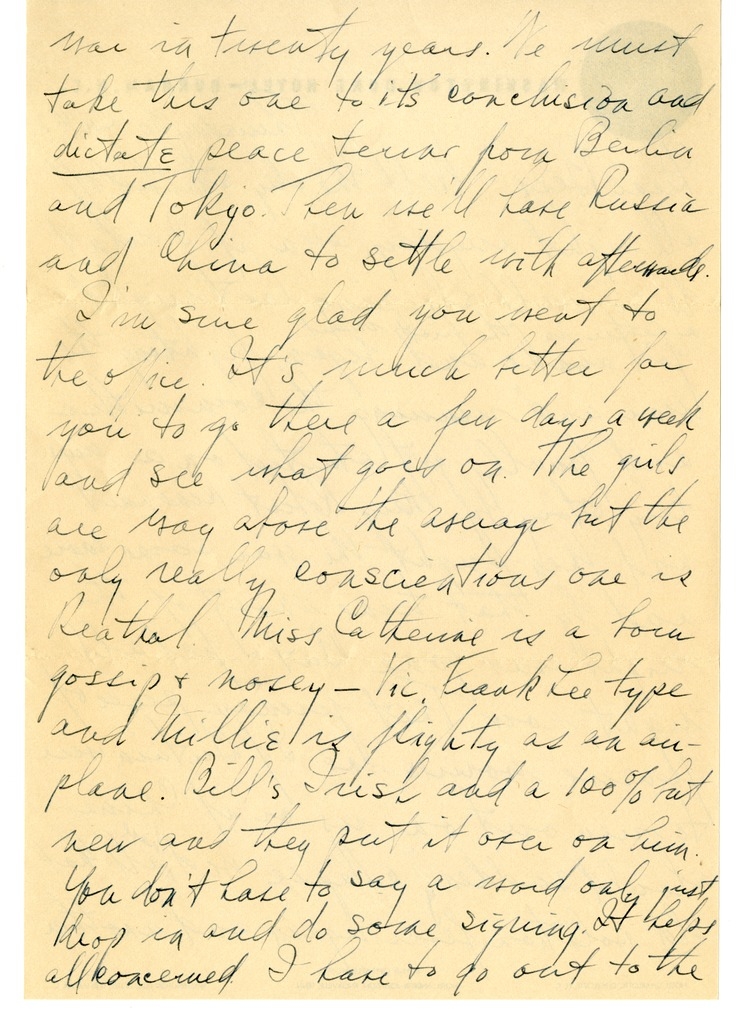 war in twenty years. We must
take this one to its conclusion and
dictate peace terms from Berlin
and Tokyo. Then we'll have Russia
and China to settle with afterwards.
I'm sure glad you went to
the office. It's much better for
you to go there a few days a week
and see what goes on. The girls
are way above the average but the
only really conscientious one is
Reathal. Miss Catherine is a born
gossip & nosey - Vic, Frank Lee type
and Millie is flighty as an air-
plane. Bill's Irish and a 100% but
new and they put it over on him.
You don't have to say a word only just
drop in and do some signing. It helps
all concerned. I have to go out to the